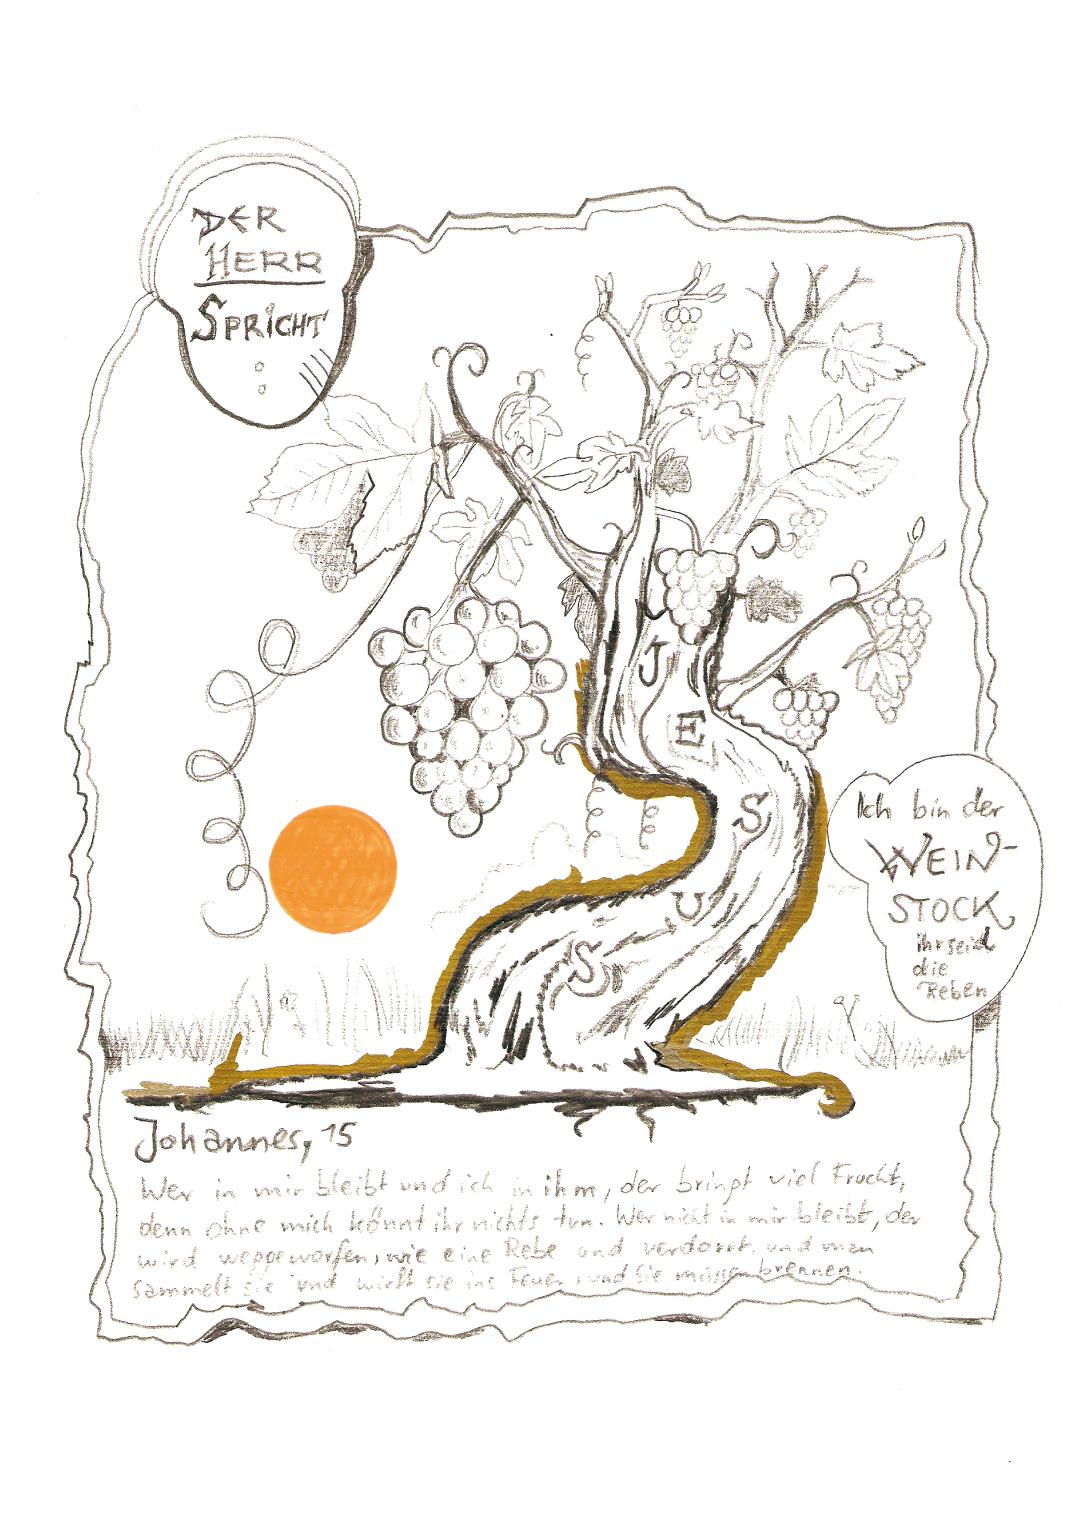 DER
HERR
SPRICHT
:
J
E
S
U
S
Ich bin der
WEIN-
STOCK
ihr seid
die
Reben
Johannes, 15
Wer in mir bleibt und ich in ihm, der bringt viel Frucht,
denn ohne mich könnt ihr nichts tun. Wer nicht in mir bleibt, der
wird weggeworfen, wie eine Rebe und verdorrt, und man
sammelt sie und wirft sie ins Feuer, und sie müssen brennen.